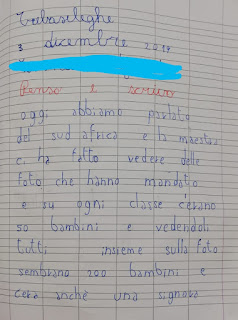 Trebaseleghe
3 dicembre 2019
Penso e scrivo
oggi abbiamo parlato
del sud africa e la maestra
ci ha fatto vedere delle
foto che hanno mandato
e su ogni classe c'erano
50 bambini e vedendoli
tutti insieme sulla foto
sembrano 200 bambini e
cera anche una signora